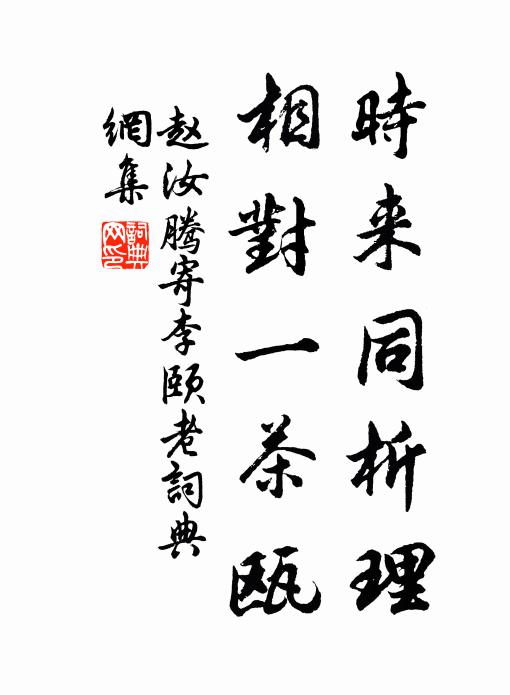 時来同析理
相對一茶甌
赵汝騰寄李頤老詞典
網集
詞典
网印